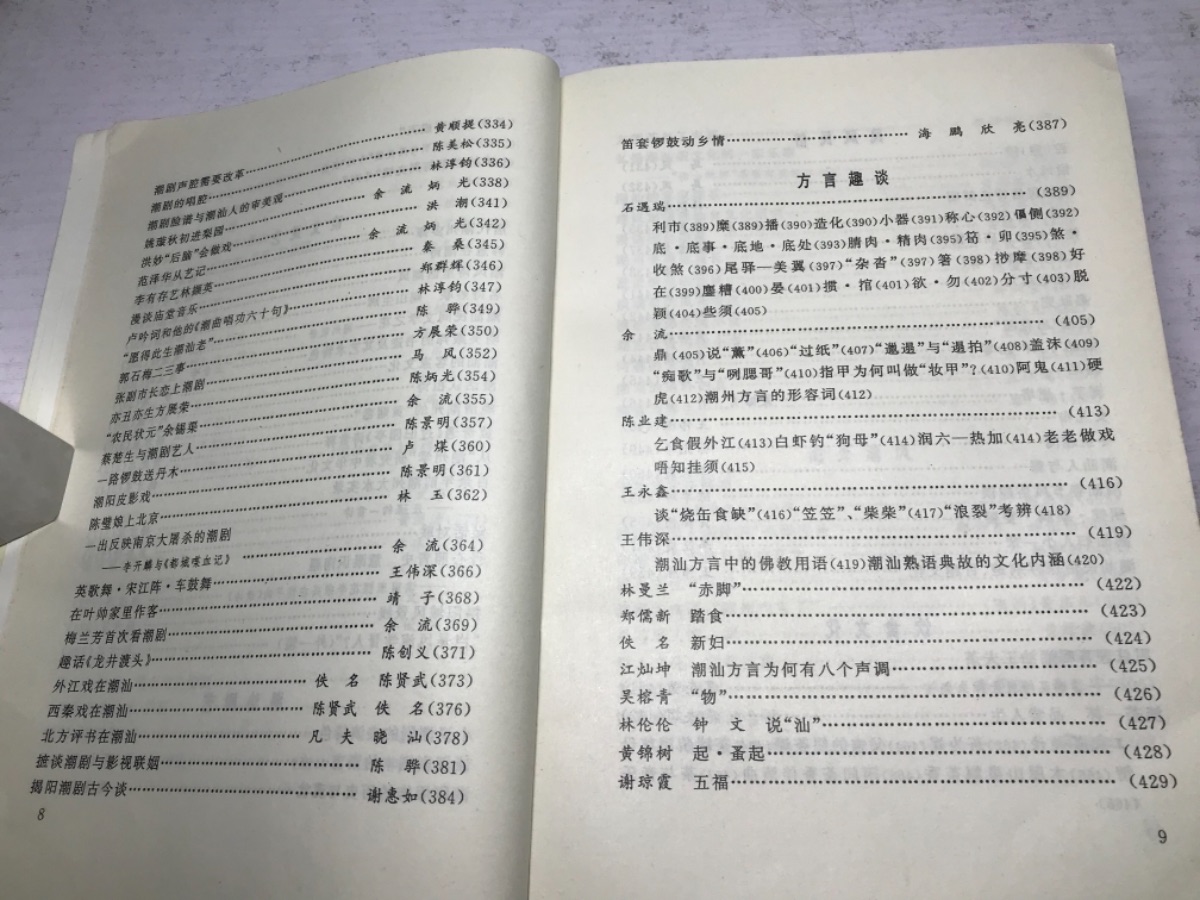 潮剧声腔需要改革……黄顺提(334)
潮剧的唱腔……陈美松(335)
潮剧脸谱与潮汕人的审美观……林淳钧(336)
姚璇秋初进梨园……余 流 炳 光(338)
洪妙“后脑”会做戏……洪 潮(341)
范泽华从艺记……余 流 炳 光(342)
李有存艺林撷英……秦 桑(345)
漫谈庙堂音乐……郑群辉(346)
卢吟词和他的《潮曲唱功六十句》……林淳钧(347)
“愿得此生潮汕老”……陈 骅(349)
郭石梅二三事……方展荣(350)
张副市长恋上潮剧……马 风(352)
亦丑亦生方展荣……陈炳光(354)
“农民状元”余锡渠……余 流(355)
蔡楚生与潮剧艺人……陈景明(357)
一路锣鼓送丹木……卢 煤(360)
潮阳皮影戏……陈景明(361)
陈璧娘上北京……林 玉(362)
一出反映南京大屠杀的潮剧
——李开麟与《都城喋血记》……余 流(364)
英歌舞·宋江阵·车鼓舞……王伟深(366)
在叶帅家里作客……靖 子(368)
梅兰芳首次看潮剧……余 流(369)
趣话《龙井渡头》……陈创义(371)
外江戏在潮汕……佚 名 陈贤武(373)
西秦戏在潮汕……陈贤武 佚 名(376)
北方评书在潮汕……凡 夫 晓 汕(378)
摭谈潮剧与影视联姻……陈 骅(381)
揭阳潮剧古今谈……谢惠如(384)
8
笛套锣鼓动乡情……海 鹏 欣 亮(387)
方言趣谈
石遇瑞……(389)
利市(389)糜(389)播(390)造化(390)小器(391)称心(392)偪侧(392)
底·底事·底地·底处(393)腈肉·精肉(395)笱·卯(395)煞·
收煞(396)尾驿—美翼(397)“杂沓”(397)箸(398)挱摩(398)好
在(399)鏖糟(400)晏(401)掼·捾(401)欲·勿(402)分寸(403)脱
颖(404)些须(405)
余 流……(405)
鼎(405)说“薰”(406)“过纸”(407)“邋遢”与“遢拍”(408)盖沫(409)
“痴歌”与“咧腮哥”(410)指甲为何叫做“妆甲”?(410)阿鬼(411)硬
虎(412)潮州方言的形容词(412)
陈业建……(413)
乞食假外江(413)白虾钓“狗母”(414)润六—热加(414)老老做戏
唔知挂须(415)
王永鑫……(416)
谈“烧缶食缺”(416)“笠笠”、“柴柴”(417)“浪裂”考辨(418)
王伟深……(419)
潮汕方言中的佛教用语(419)潮汕熟语典故的文化内涵(420)
林曼兰 “赤脚”……(422)
郑儒新 踏食……(423)
佚 名 新妇……(424)
江灿坤 潮汕方言为何有八个声调……(425)
吴榕青 “物”……(426)
林伦伦 钟 文 说“汕”……(427)
黄锦树 起·蚤起……(428)
谢琼霞 五福……(429)
9